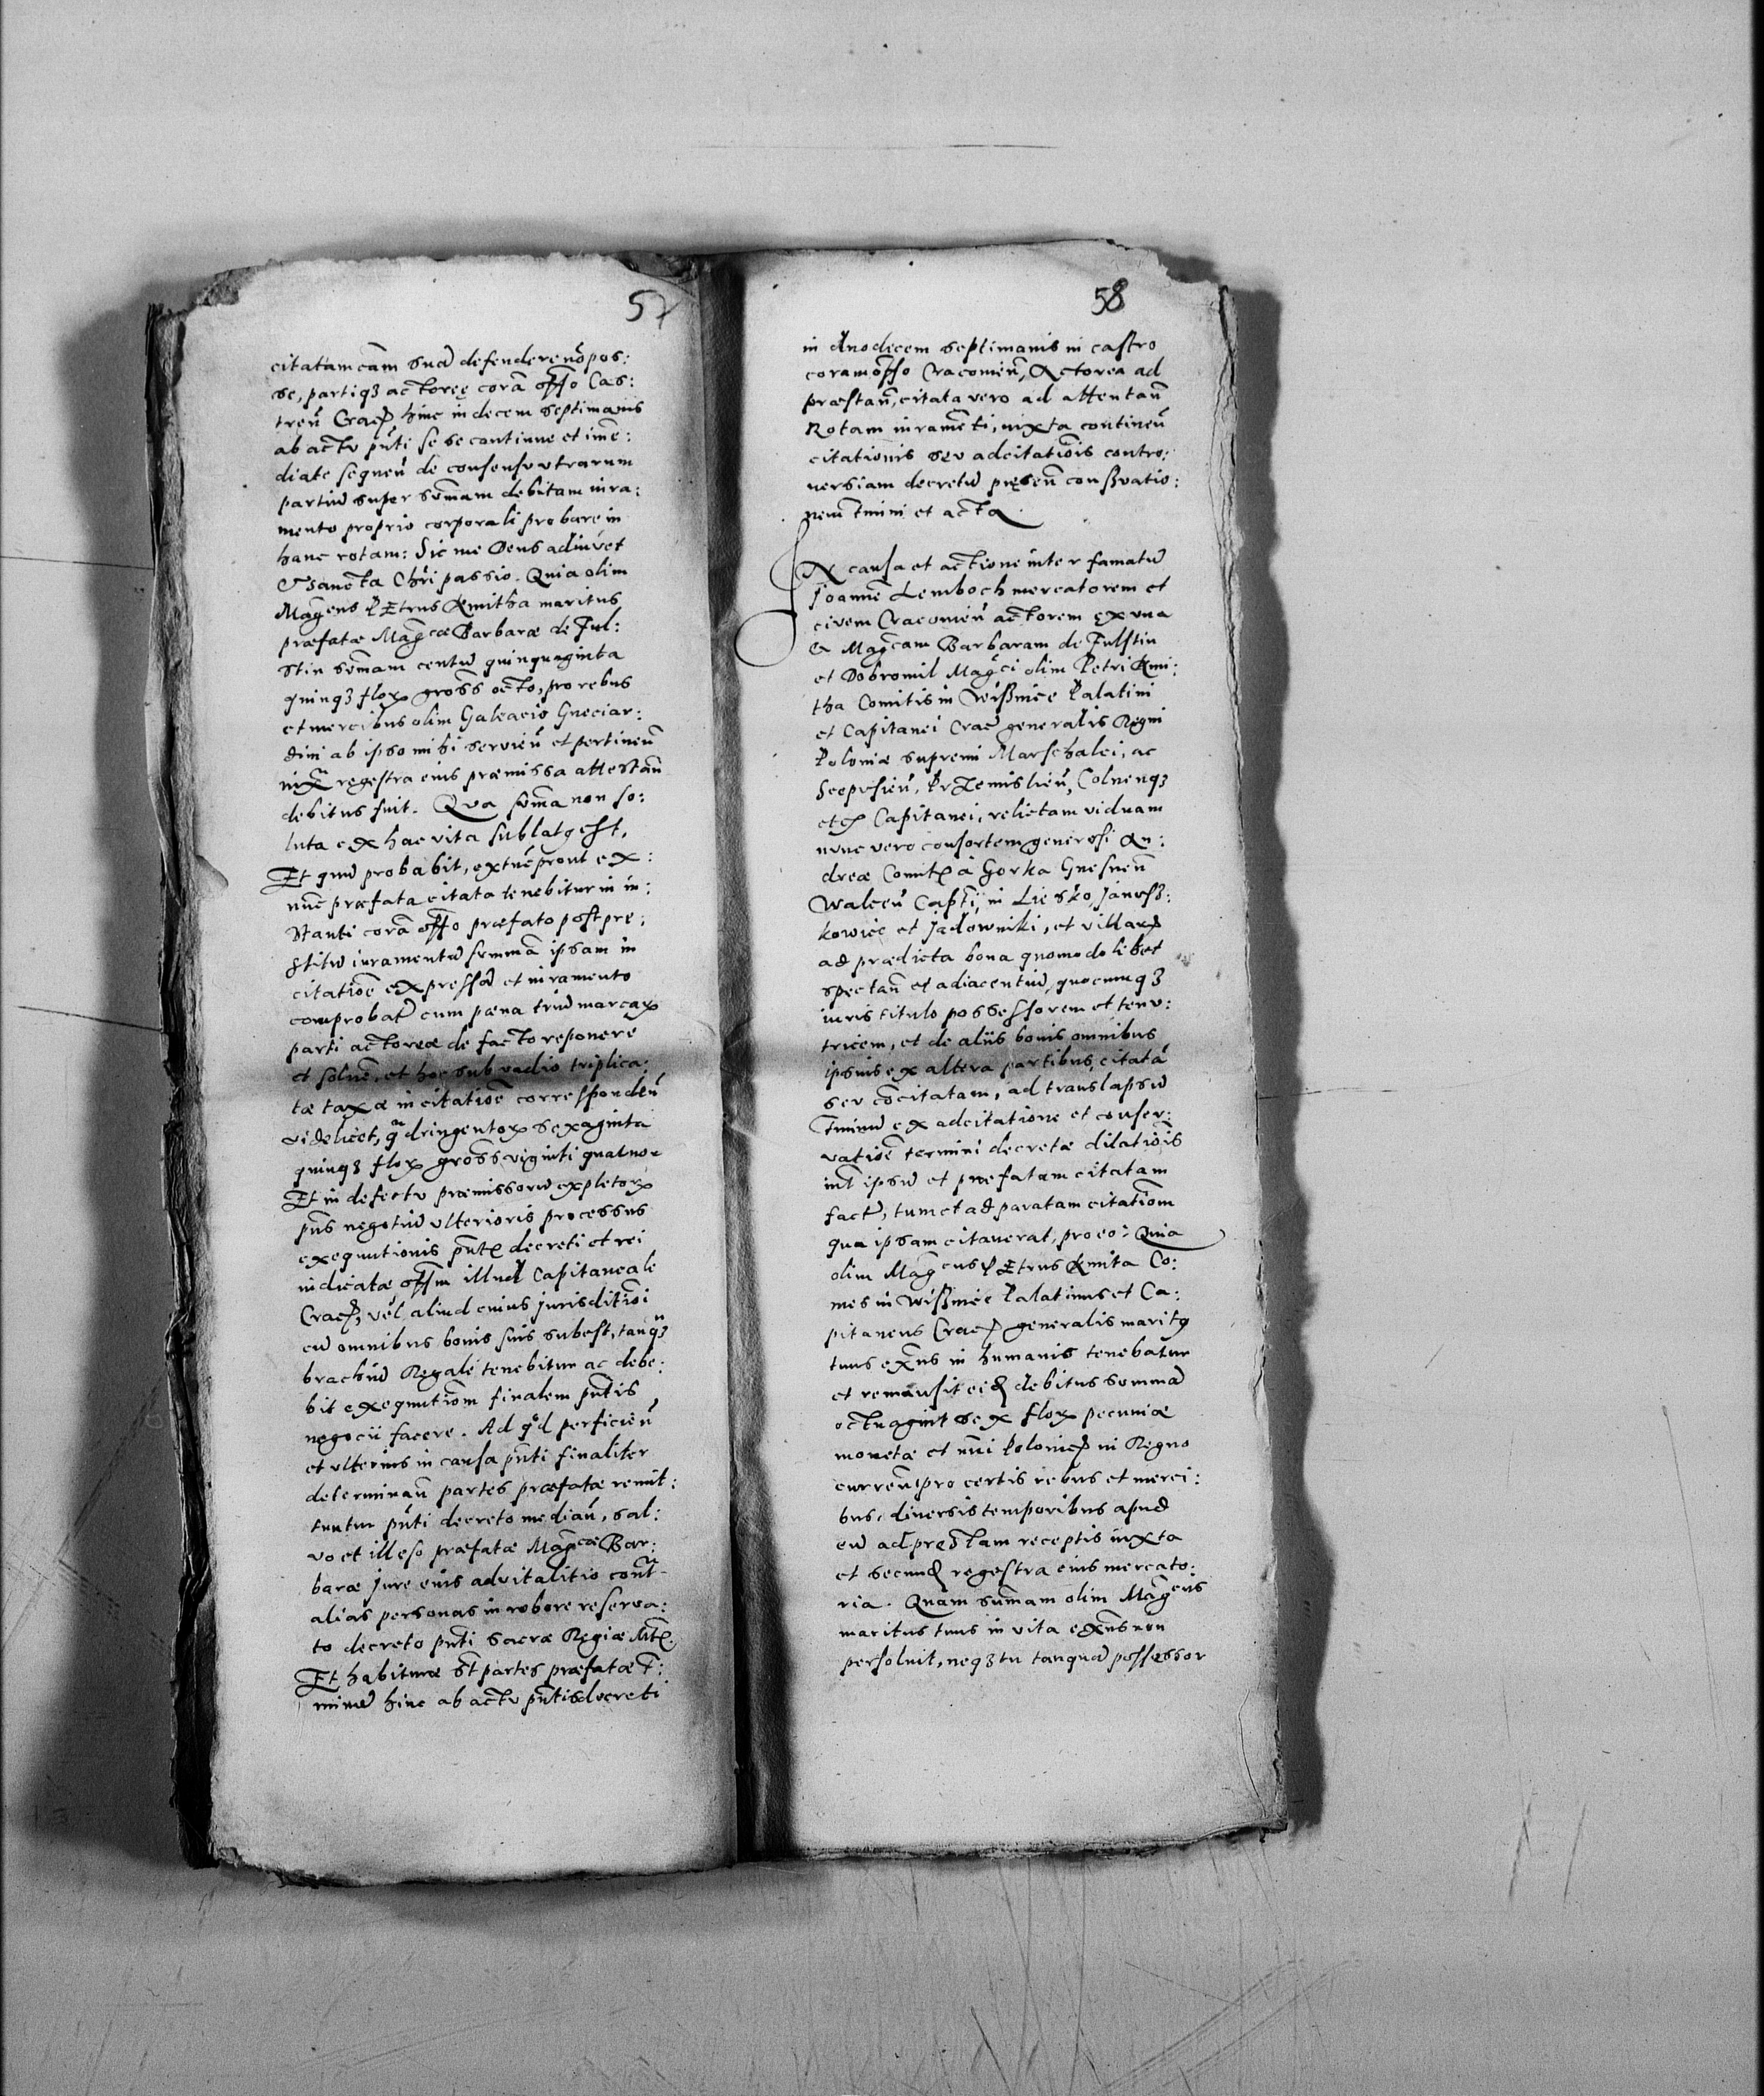 57
citatam cãm suã defendere nõ pos:
se, partiq3 actoreę corã offo Cas:
treñ Crac, hinc in decem septimanis
ab actu pñti se se continue et imme:
diate sequeñ de consensu utrarum
partiũ super summam debitam iura:
mento proprio corporali probare in
hanc rotam: Sic me Deus adiuvet
et sancta Chri passio. Quia olim
Magcus PEtrus Kmitha maritus
præfatæ Magcæ Barbaræ de Ful:
stin summam centũ quinquaginta
quinq3 flox gross octo, pro rebus
et mercibus olim Galeacio Gueciar:
dini ab ipso mihi servieñ et pertineñ
iuxta regestra eius præmissa attestañ
debitus fuit. Qua summa non so:
luta ex hac vita sublatus est.
Et quũ probabit, extũc prout ex:
nũc præfata citata tenebitur in in:
stanti corã offo præfato post pre:
stitũ iuramentũ summã ipsam in
citatiõe expressã et iuramento
comprobatã cum pæna triũ marcax
parti actoreæ de facto reponere
et solue, et hoc sub vadio triplica:
tæ taxæ in citatiõe correspondeñ
videlicet, quadringentox sexaginta
quinq3 flox gross viginti quatuor
Et in defectu præmissorũ expletox
pñs negotiũ ulterioris processus
exequutionis pñtis decreti et rei
iudicatæ offm illud Capitaneale
Crac, vel aliud cuius jurisditioi
cũ omnibus bonis suis subest, tanq3
brachiũ Regale tenebitur ac debe:
bit exequutiõm finalem pñtis
negocii facere. Ad qd perficieñ
et ulterius in causa pñti finaliter
determinañ partes præfatæ remit:
tuntur pñti decreto mediañ, sal:
vo et illeso præfatæ Magcæ Bar:
baræ jure eius advitalitio contra
alias personas in robore reserva:
to decreto pñti Sacræ Regiæ Mtis.
Et habituræ st partes præfatæ t:
minũ hinc ab actu pñtis decreti
58
in duodecem septimanis in castro
coram offo Cracovieñ, Actorea ad
præstañ, citata vero ad attentañ
Rotam iuramẽti, iuxta contineñ
citationis seu adcitatiõis contro:
versiam decretũ pręseñ conservatio:
nem tmini et acta.
IN causa et actione inter famatũ
Joannẽ Lemboch mercatorem et
civem Cracovieñ actorem ex una
& Magcam Barbaram de Fulstin
et Dobromil Magci olim Petri Kmi:
tha Comitis in Wißnice Palatini
et Capitanei Crac generalis Regni
Poloniæ supremi Marschalci, ac
Scepusieñ, PrZemislieñ, Colnenq3
etc Capitanei, relictam viduam
nunc vero consortem generosi An:
dreæ Comitis à Gorka Gnesneñ
Walceñ Captĩi, in Liesko, Janusß:
kowice et Jadowniki, et villax
ad prædicta bona quomodolibet
spectañ et adiacentiũ, quocumq3
iuris titulo possessorem et tenu:
tricem, et de aliis bonis omnibus
ipsius ex altera partibus, citatã
seu cõcitatam, ad translapsũ
Tminũ ex adcitatione et conser:
vatiõe termini decretæ dilatiõis
int ipsũ et præfatam citatam
factũ, tum et ad paratam citatiõm
qua ipsam citaverat, pro eo: Quia
olim Magcus PEtrus Kmita Co:
mes in Wißnice Palatinus et Ca:
pitaneus Crac generalis maritus
tuus exñs in humanis tenebatur
et remansit eid debitus summã
octuagint sex flox pecuniæ
monetæ et nũi Polonic in Regno
curreñ pro certis rebus et merci:
bus, diversis temporibus apud
eũ ad pręstam receptis iuxta
et secund regestra eius mercato:
ria. Quam summam olim Magcus
maritus tuus in vita exñs non
persolvit, neq3 tu tanquã possessor